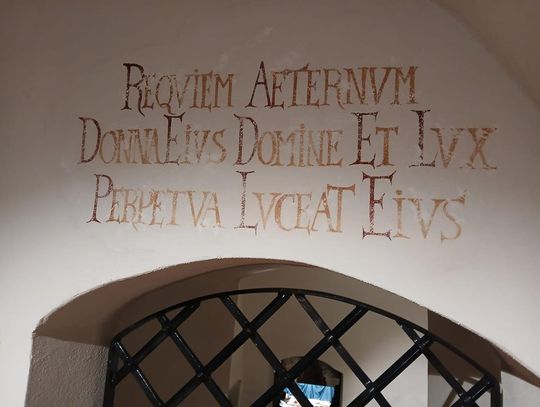 REQVIEM AETERNVM
DONNA EIVS DOMINE ET LVX
PERPETVA LVCEAT EIVS